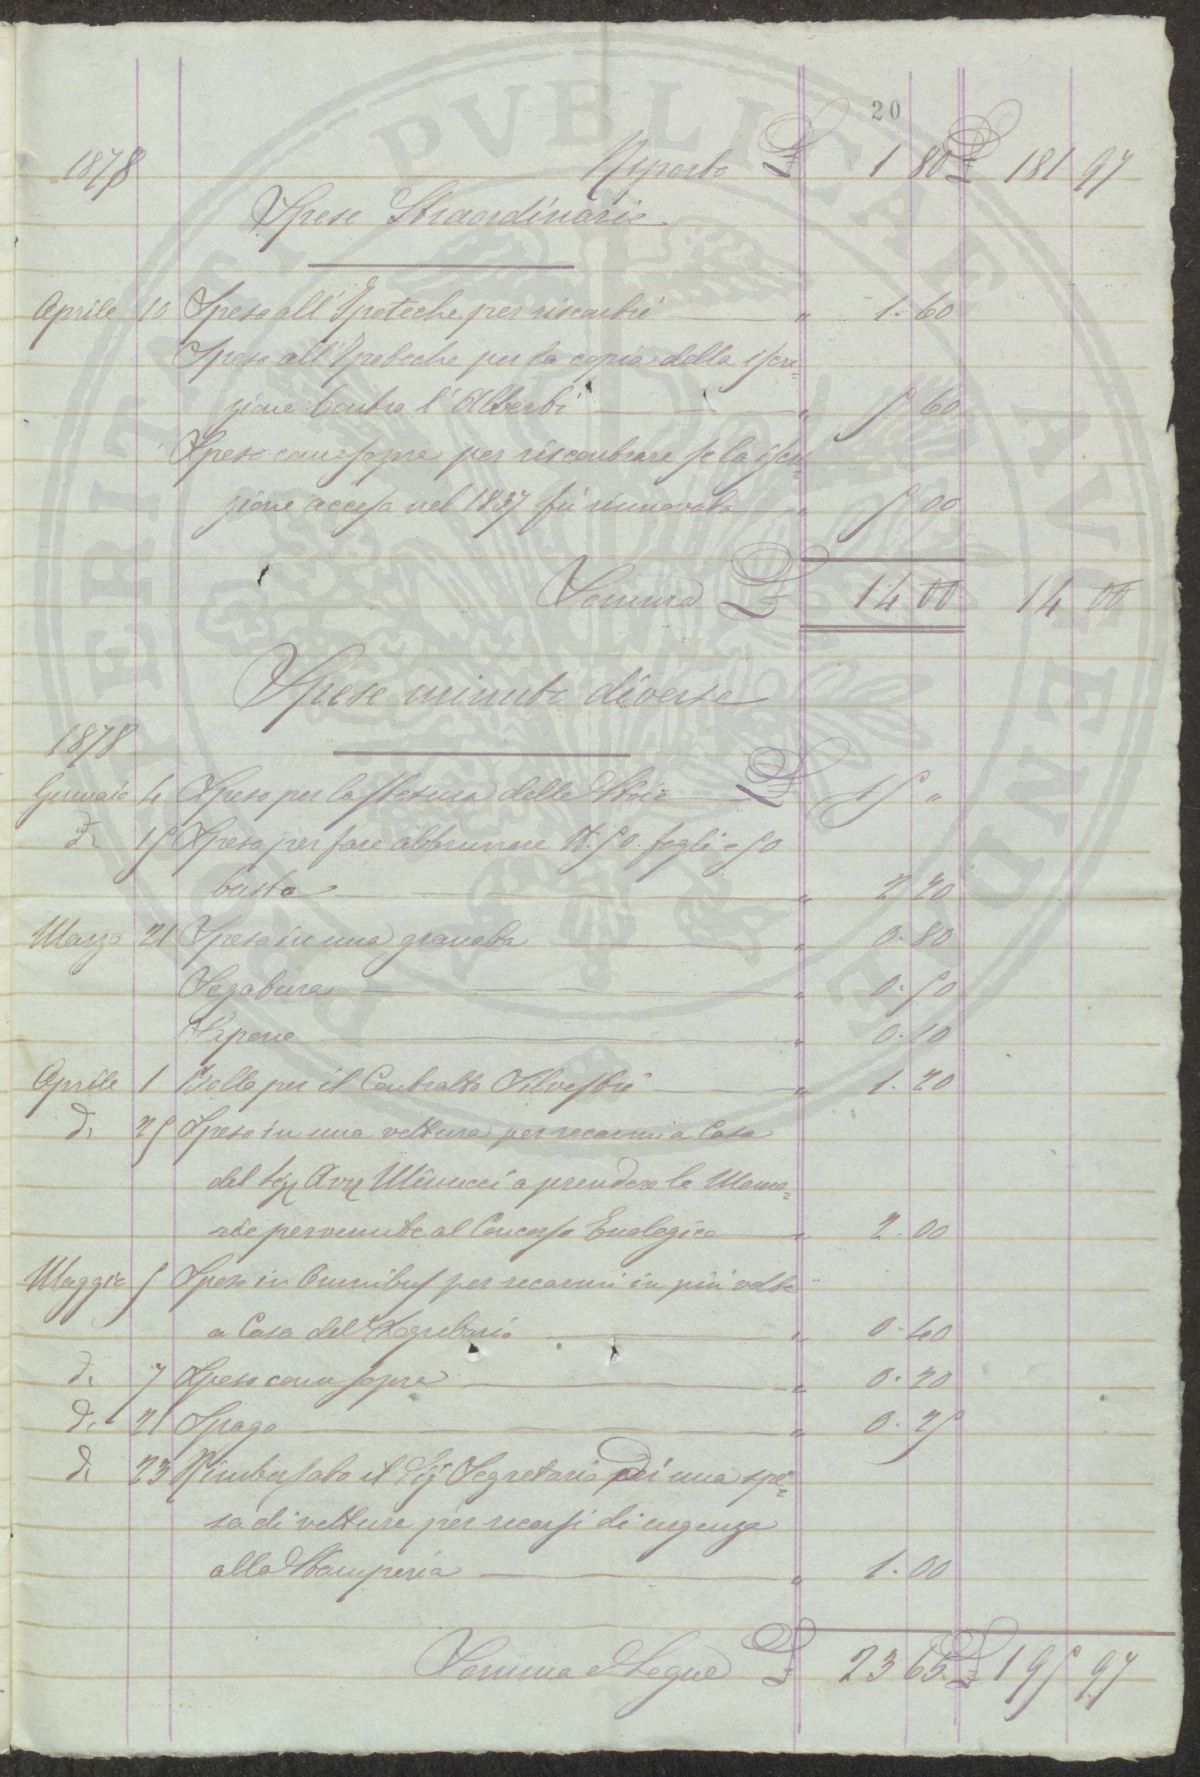 20
1878 Riporto £ 1 80 £ 181 97
Spese Straordinarie
Aprile 10 Speso all'Ipoteche per riscontri " 1. 60
Speso all'Ipoteche per la copia della iscri=
zione contro l'Alberti " 5 60
Speso come sopra per riscontrare se la iscri=
zione accesa nel 1837 fù rinnovata " 5 00
Somma £ 14 00 14 00
Spese minute diverse
1878
Gennaio 4 Speso per la stesura delle Stoie £ 15 "
Dº 15 Speso per fare abbrunare Nº 50 fogli e 50
buste " 2 20
Marzo 21 Speso in una granata " 0. 80
Segatura " 0. 50
Sapone " 0. 10
Aprile 1 Bollo per il Contratto Silvestri " 1. 20
Dº 25 Speso in una vettura per recarmi a Casa
del Sig Avv Minucci a prendere le Memo=
rie pervenute al Concorso Enologico " 2. 00
Maggio 5 Speso in Omnibus per recarmi in più volte
a Casa del Segretario " 0. 40
Dº 7 Speso come sopra " 0. 20
Dº 21 Spago " 0. 25
Dº 23 Rimborsato il Sigr Segretario di una spe=
sa di vettura per recarsi di urgenza
alla Stamperia " 1. 00
Somma e Segue £ 23 65 £ 195 97
PROSPERITATI PVBLICAE AVGENDAE